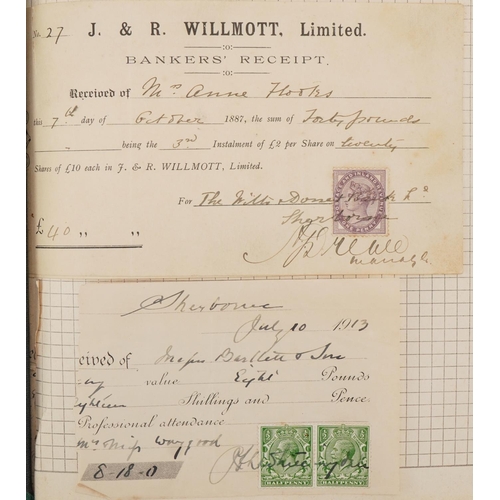 No. 27 J. & R. WILLMOTT, Limited.
BANKERS' RECEIPT.
Received of Mrs Anne Hooks
this 7th day of October 1887, the sum of Forty pounds
" being the 3rd Instalment of £2 per Share on twenty
Shares of £10 each in J. & R. WILLMOTT, Limited.
For The Wilts & Dorset Bank Ld
Sherborne
£40 " "
Manager
Sherborne
July 10 1913
eived of Messrs Bartlett & Son
value Eight Pounds
ighteen Shillings and Pence
Professional attendance
Miss Waygood
8-18-0
HALFPENNY HALFPENNY